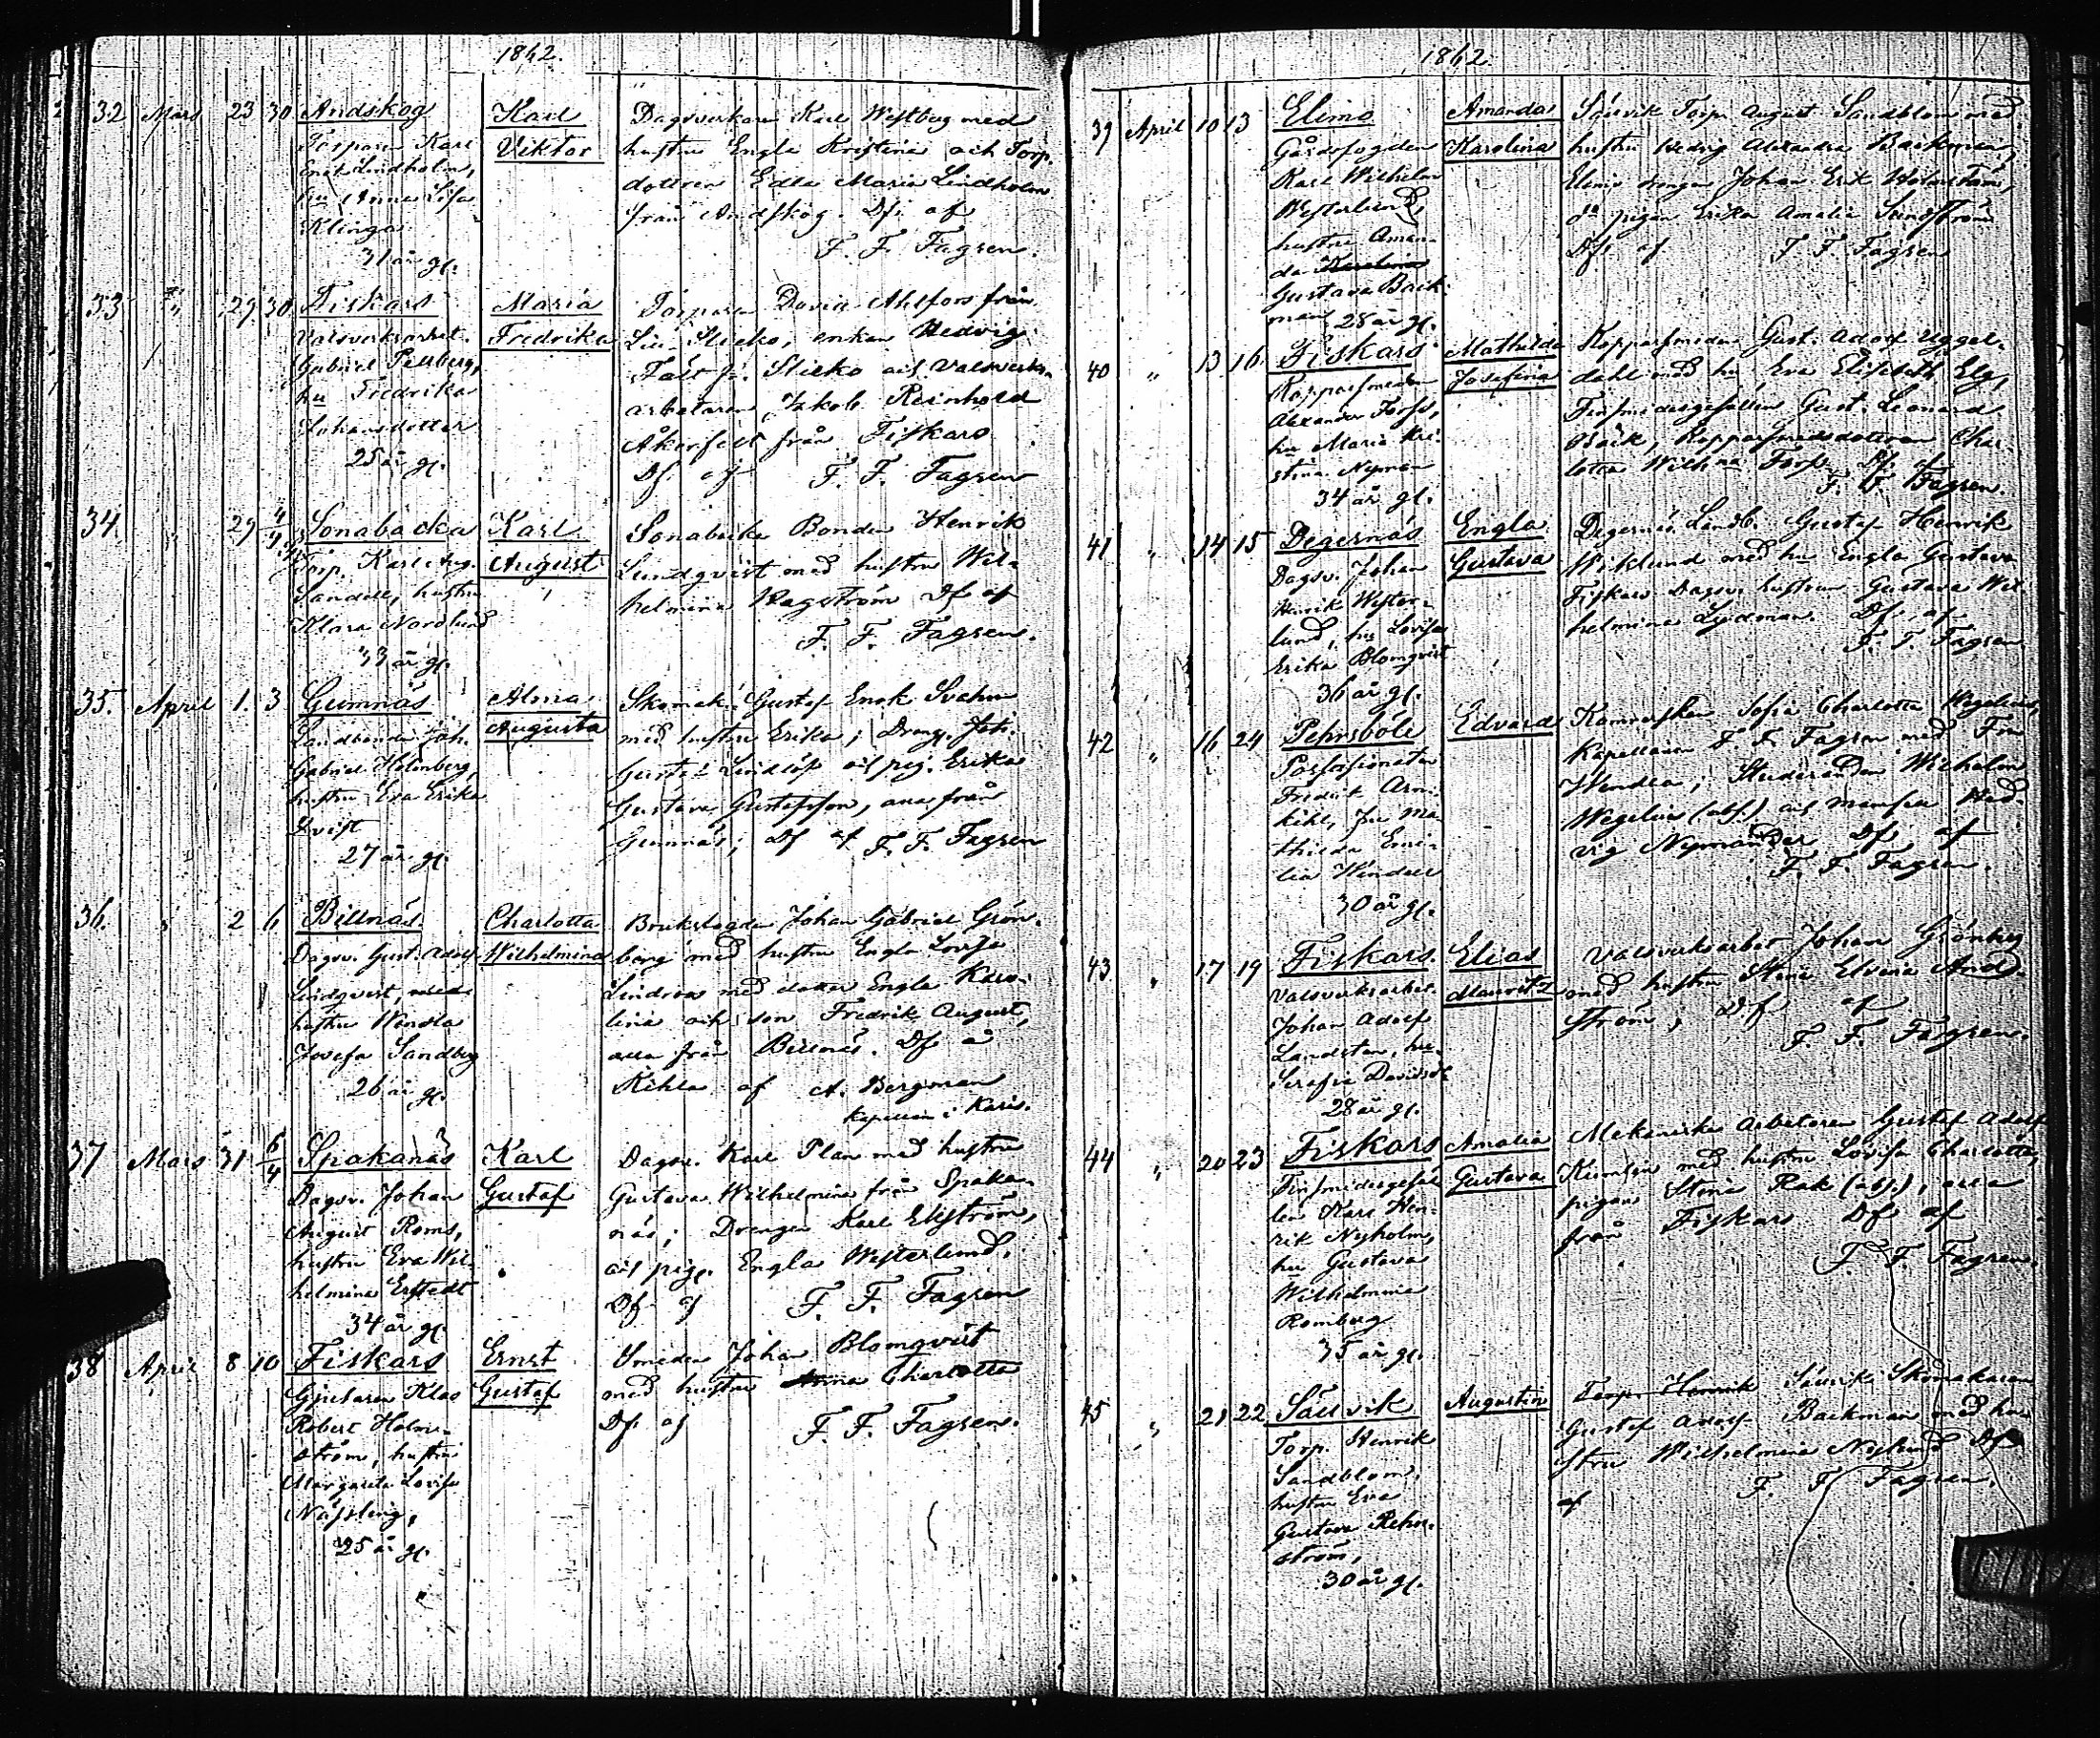 1862.
32 Mars 23 30 Andskog
Torparen Karl
Enok Lindholm,
hu Anna Lisa
Klinga
31 år gl.
Karl
Viktor
Dagsverkaren Karl Westberg med
hustru Engla Kristina och Torp.
dottren Edla Maria Lindholm
från Andskog. Df. af
F. F. Fagren.
33 " 29 30 Fiskars
Valsverksarbet.
Gabriel
hu Fredrika
Johansdotter
25 år gl.
Maria
Fredrika
Torparen David Ahlfors från
enkan Hedvig
och Valsverks-
arbetaren Jakob Reinhold
Åkerfelt från Fiskars
Df. af F. F. Fagren
34. " 29 4/4 Sonabacka
Torp. Karl Aug.
Sandell, hustru
Klara Nordlund
33 år gl.
Karl
August
Sonabacka Bonden Henrik
Lundqvist med hustru Wil-
helmina Hagström Df af
F. F. Fagren.
35. April 1. 3 Gumnäs
Landbonden Joh.
Gabriel Holmberg,
hustru Eva Erika
Qvist
27 år gl.
Alma
Augusta
Skomak. Gustaf Enok Svahn
med hustru Erika; Dreng. Joh.
Gustaf Lindlöf och pig. Erika
Gustava Gustafsson, alla från
Gumnäs; Df af F. F. Fagren
36. " 2 6 Billnäs
Dagsv. Gust. Adolf
Lindqvist, med
hustru Wendla
Josefa Sandberg
26 år gl.
Charlotta
Wilhelmina
Bruksfogden Johan Gabriel Grön-
berg med hustru Engla Lovisa
Lindroos med dotter Engla Karo-
lina och son Fredrik August,
alla från Billnäs. Df å
Kihla af A. Bergman
kapellan i Karis.
37 Mars 31 6/4 Spakanäs
Dagsv. Johan
August Roms,
hustru Eva Wil-
helmina Erstedt
34 år gl.
Karl
Gustaf
Dagsv. Karl Plan med hustru
Gustava Wilhelmina från Spaka-
näs; Drengen Karl Ekström,
och pig. Engla Westerlund.
Df af F. F. Fagren
38 April 8 10 Fiskars
Gjutaren Klas
Robert Holm-
ström, hustru
Margareta Lovisa
Nässling,
25 år gl.
Ernst
Gustaf
Smeden Johan Blomqvist
med hustru Anna Charlotta
Df. af F. F. Fagren.
1862.
39 April 10 13 Elimo
Gårdsfogden
Karl Wilhelm
Westerlund,
hustru Aman-
da Karolina
Gustava Back-
man 28 år gl.
Amanda
Karolina
Sårvik Torp. August Sandblom med
hustru Hedvig Alexandra Backman,
Elimo drengen Johan Erik Holmström,
do pigan Erika Amalia Sundström
Df. af F. F. Fagren
40 " 13 16. Fiskars
Kopparsmeden
Alexander Forss,
hu Maria Kri-
stina Nyman
34 år gl.
Mathilda
Josefina
Kopparsmeden Gust. Adolf Uggel-
dahl med hu Eva Elisabeth Elg,
Finsmidesgesällen Gust. Leonard
Bäck, Kopparsmedsdottren Char-
lotta Wilhna Forss. Df. af
F. F. Fagren.
41 " 14 15 Degernäs
Dagsv. Johan
Henrik Wester-
lund, hu Lovisa
Erika Blomqvist
36 år gl.
Engla
Gustava
Degernäs Landb. Gustaf Henrik
Wiklund med hu Engla Gustava
Fiskars Dagsv. hustrun Gustava Wil-
helmina Lydman. Df. af
F. F. Fagren
42 " 16 24 Pehrsböle
Possessionaten
Fredrik Arm-
kihl, fru Ma-
thilda Emi-
lia Winduer
30 år gl.
Edvard
Sofia Charlotta Wegelius,
Kapellanen F. F. Fagren med Fru
Wendla; Studeranden Wilhelm
Wegelius (abs.) och mamsell Hed-
vig Nymander Df. af
F. F. Fagren.
43 " 17 19 Fiskars.
Valsverksarbet.
Johan Adolf
Landsten, hu
Serafia Davidsdr
28 år gl.
Elias
Mauritz
Valsverksarbet Johan Grönberg
med hustru Stina Elvira And-
ström; Df af
F. F. Fagren.
44 " 20 23 Fiskars
Finsmidesgesäl-
len Karl Hen-
rik Nyholm,
hu Gustava
Wilhelmina
Romberg
35 år gl.
Amalia
Gustava
Mekaniska arbetaren Gustaf Adolf
med hustru Lovisa Charlotta,
pigan Stina Rak (abs.), alla
från Fiskars Df af
F. F. Fagren.
45 " 21 22 Sårvik
Torp. Henrik
Sandblom,
hustru Eva
Gustava Rehn-
ström,
30 år gl.
Augustin
Torp. Henrik Sårvik Skomakaren
Gustaf Adolf Backman med hu-
stru Wilhelmina Nylund Df
af F. F. Fagren.